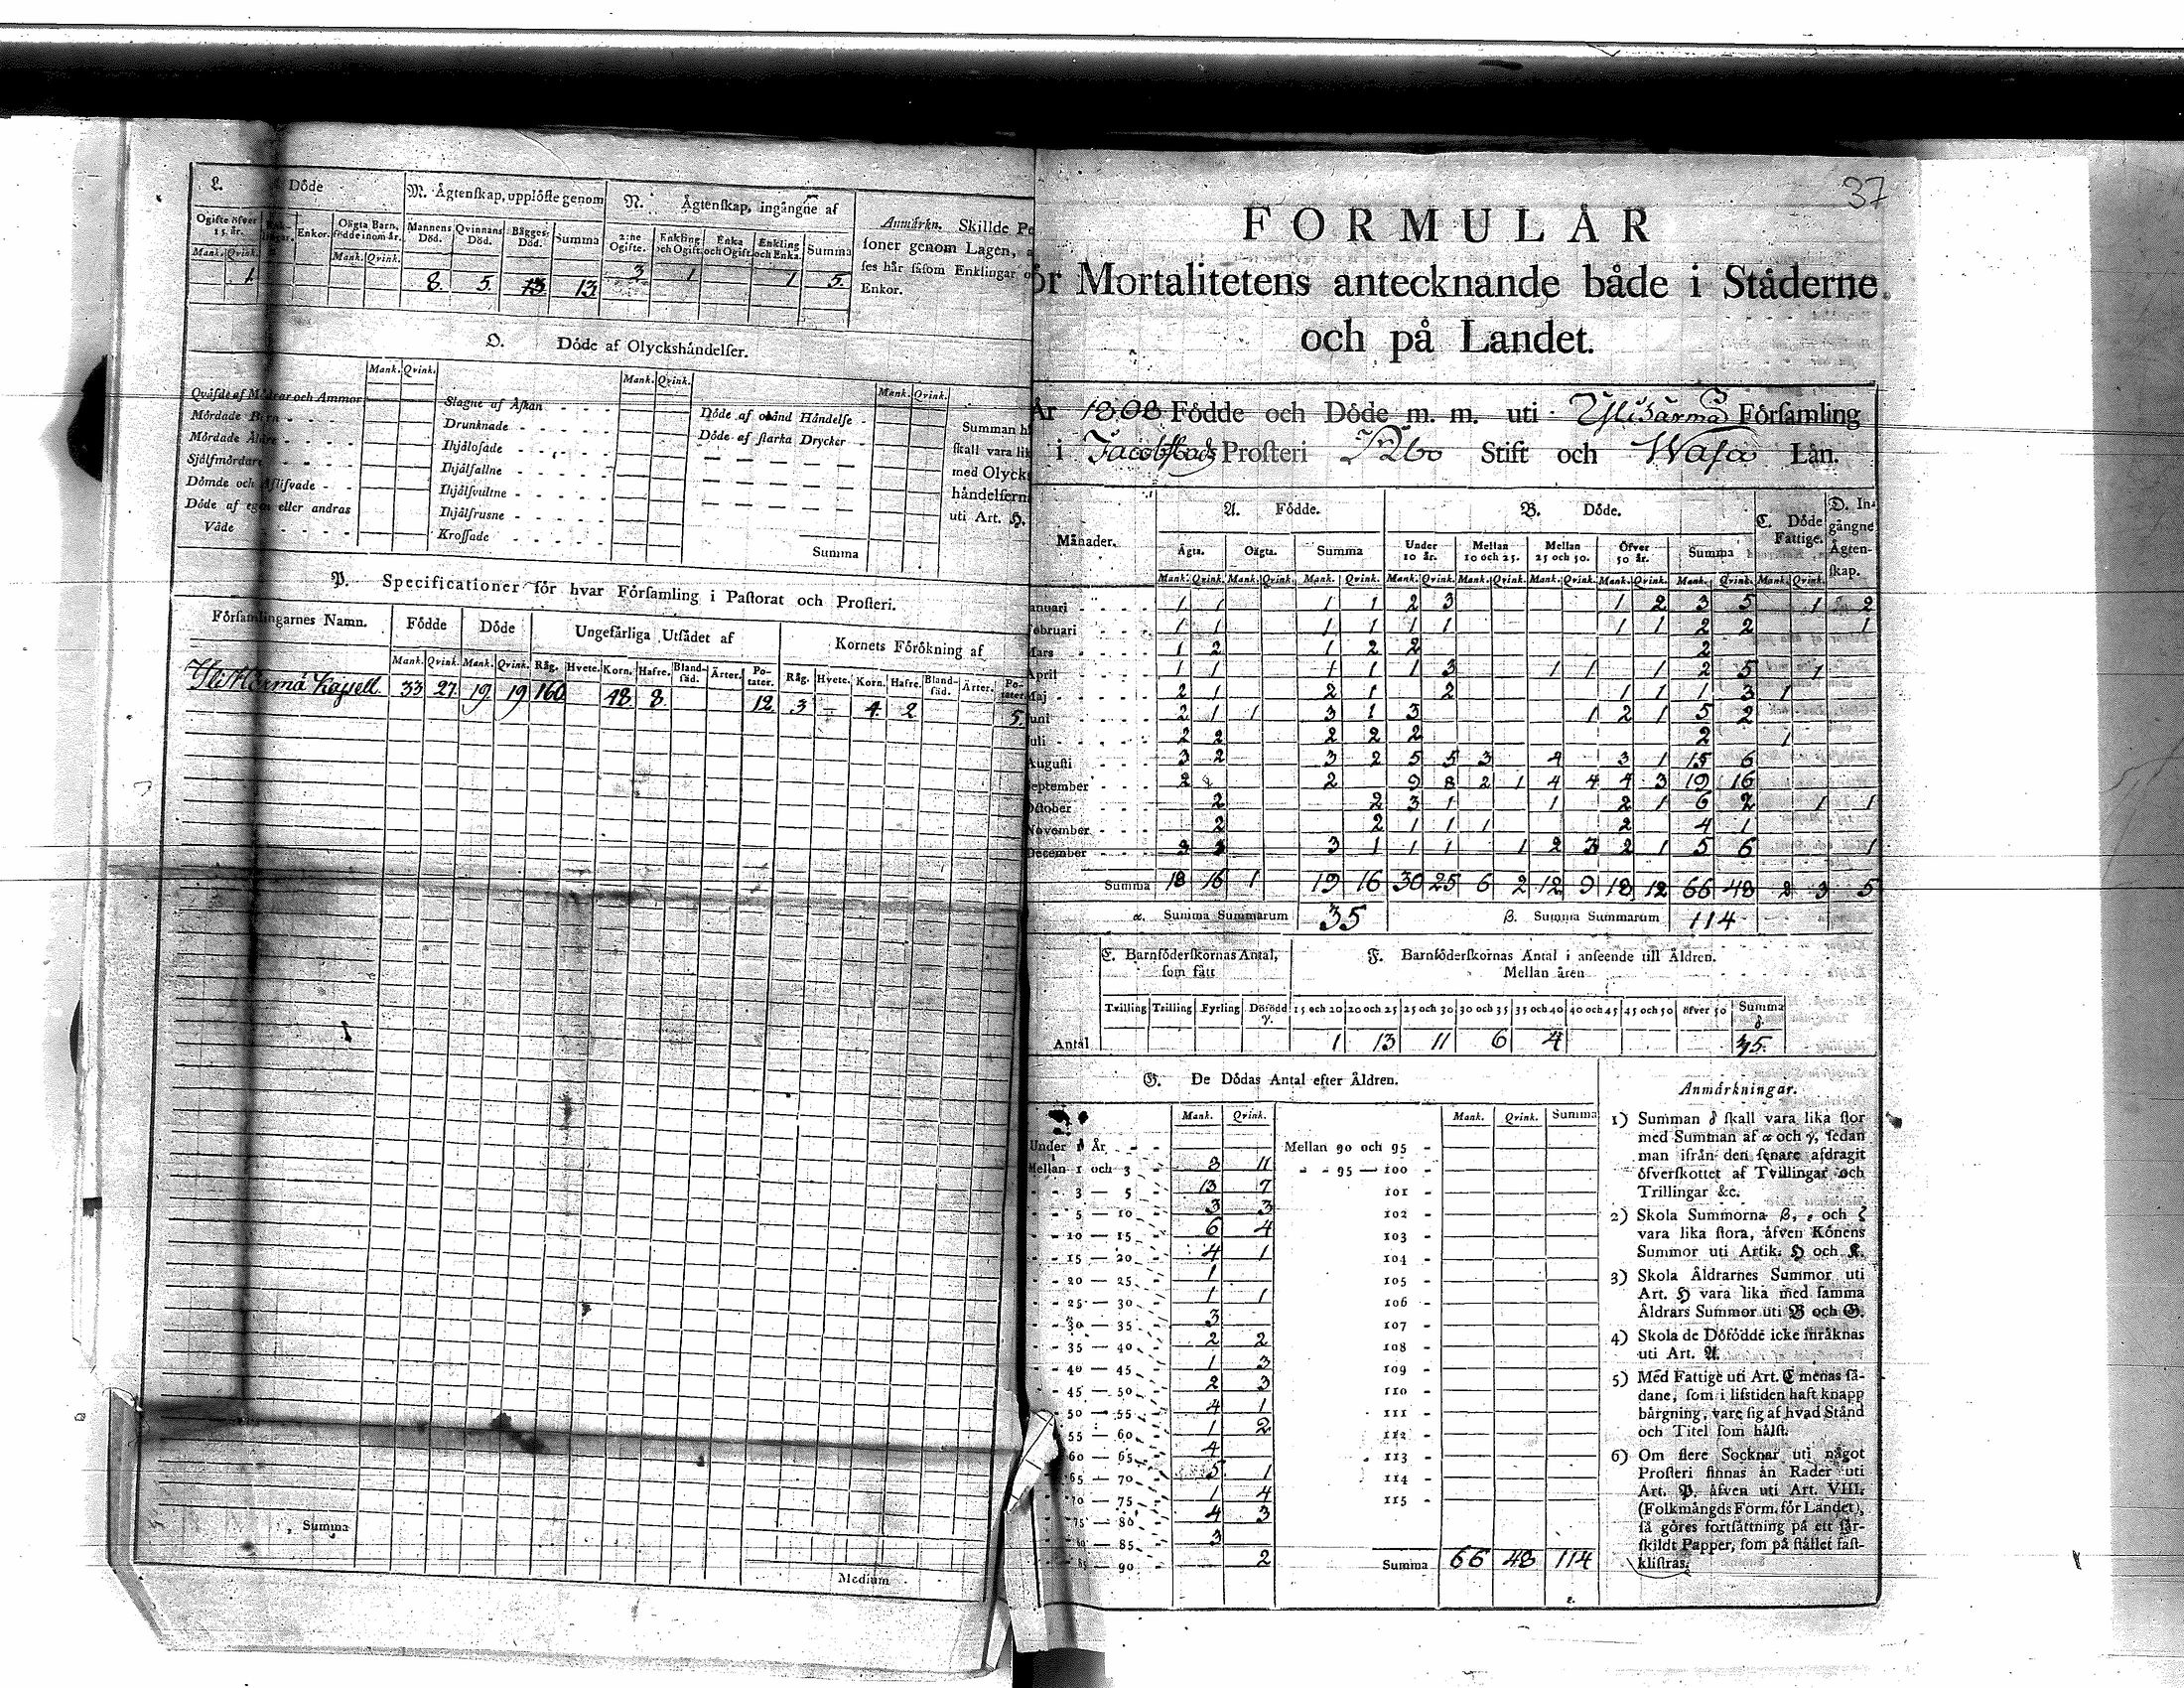 L. Döde
M. Ägtenſkap, upplöſte genom
N. Ägtenſkap, ingångne af
Ogifte öfver 15 år. Enkor. Oägta Barn, födde inom år. Mannens Död. Qvinnans Död. Bägges Död. Summa 2:ne Ogifte. Enkling och Ogift. Enka och Ogift. Enkling och Enka. Summa
Mank. Qvink. Mank. Qvink.
1 8. 5. 13 13 3 1 1 5.
Anmärkn. Skillde Pe
ſoner genom Lagen, a
ſes här ſåſom Enklingar o
Enkor.
O. Döde af Olyckshändelſer.
Mank. Qvink. Mank. Qvink. Mank. Qvink.
Qväfde af Mödrar och Ammor
Mördade Barn
Mördade Äldre
Sjelfmördare
Dömde och Aflifvade
Döde af egen eller andras
Våde
Slagne af Åſkan
Drunknade
Ihjäloſade
Ihjälfallne
Ihjälſvultne
Ihjälfruſne
Kroſſade
Döde af okänd Händelſe
Döde af ſtarka Drycker
Summa
Summan h
ſkall vara lik
med Olycks
händelſern
uti Art. H.
P. Specificationer för hvar Förſamling i Paſtorat och Proſteri.
Förſamlingarnes Namn. Födde Döde Ungefärliga Utſädet af Kornets Förökning af
Mank. Qvink. Mank. Qvink. Råg. Hvete. Korn. Hafre. Bland-ſäd. Ärter. Po-tater. Råg. Hvete. Korn. Hafre. Bland-ſäd. Ärter. Po-tater.
Ylihärmä Kapell 33 27 19 19 160 48. 8. 12. 3 4. 2 5.
Summa
Medium
37
FORMULÄR
ör Mortalitetens antecknande både i Städerne
och på Landet.
År 1808 Födde och Döde m. m. uti Ylihärmä Förſamling
i Jacobſtads Proſteri Åbo Stift och Waſa Län.
Månader. A. Födde. B. Döde. C. Döde Fattige. D. Ingångne Ägtenſkap.
Ägta. Oägta. Summa Under 10 år. Mellan 10 och 25. Mellan 25 och 50. Öfver 50 år. Summa
Mank. Qvink. Mank. Qvink. Mank. Qvink. Mank. Qvink. Mank. Qvink. Mank. Qvink. Mank. Qvink. Mank. Qvink. Mank. Qvink.
anuari 1 1 1 1 2 3 1 2 3 5 1 2
ebruari 1 1 1 1 1 1 1 1 2 2 1
Mars 1 2 1 2 2 2
April 1 1 1 1 1 3 1 1 1 2 5 1
Maj 2 1 2 1 2 1 1 1 3 1
uni 2 1 1 3 1 3 1 2 1 5 2
uli 2 2 2 2 2 2 1
Auguſti 3 2 3 2 5 5 3 4 3 1 15 6
eptember 2 2 9 8 2 1 4 4 4 3 19 16
October 2 2 3 1 1 2 1 6 2 1 1
November 2 2 1 1 1 2 4 1
December 3 3 1 1 1 1 2 3 2 1 5 6 1
Summa 18 16 1 19 16 30 25 6 2 12 9 18 12 66 48 2 3 5
α. Summa Summarum 35 β. Summa Summarum 114
E. Barnföderſkornas Antal, ſom fått
F. Barnföderſkornas Antal i anſeende till Åldren.
Mellan åren
Tvilling Trilling Fyrling Dödfödd γ. 15 och 20 20 och 25 25 och 30 30 och 35 35 och 40 40 och 45 45 och 50 öfver 50 Summa δ.
Antal 1 13 11 6 4 35.
G. De Dödas Antal efter Åldren.
Mank. Qvink. Mank. Qvink. Summa
Under 1 År Mellan 90 och 95
Mellan 1 och 3 8 11 95 — 100
3 — 5 13 7 101
5 — 10 3 3 102
10 — 15 6 4 103
15 — 20 4 1 104
20 — 25 1 105
25 — 30 1 1 106
30 — 35 3 107
35 — 40 2 2 108
40 — 45 1 3 109
45 — 50 2 3 110
50 — 55 4 1 111
55 — 60 1 2 112
60 — 65 4 113
65 — 70 5 1 114
70 — 75 1 4 115
75 — 80 4 3
80 — 85 3
85 — 90 2 Summa 66 48 114
Anmärkningar.
1) Summan δ ſkall vara lika ſtor
med Summan af α och γ, ſedan
man ifrån den ſenare afdragit
öfverſkottet af Tvillingar och
Trillingar &c.
2) Skola Summorna β, ε och ζ
vara lika ſtora, äfven Könens
Summor uti Artik. H och K.
3) Skola Åldrarnes Summor uti
Art. H vara lika med ſamma
Åldrars Summor uti B och G.
4) Skola de Döfödde icke inräknas
uti Art. A.
5) Med Fattige uti Art. C menas ſå-
dane, ſom i lifstiden haft knapp
bärgning, vare ſig af hvad Stånd
och Titel ſom hälſt.
6) Om flere Socknar uti något
Proſteri finnas än Rader uti
Art. P. äfven uti Art. VIII.
(Folkmängds Form. för Landet),
ſå göres fortſättning på ett ſär-
ſkildt Papper, ſom på ſtället faſt-
kliſtras.